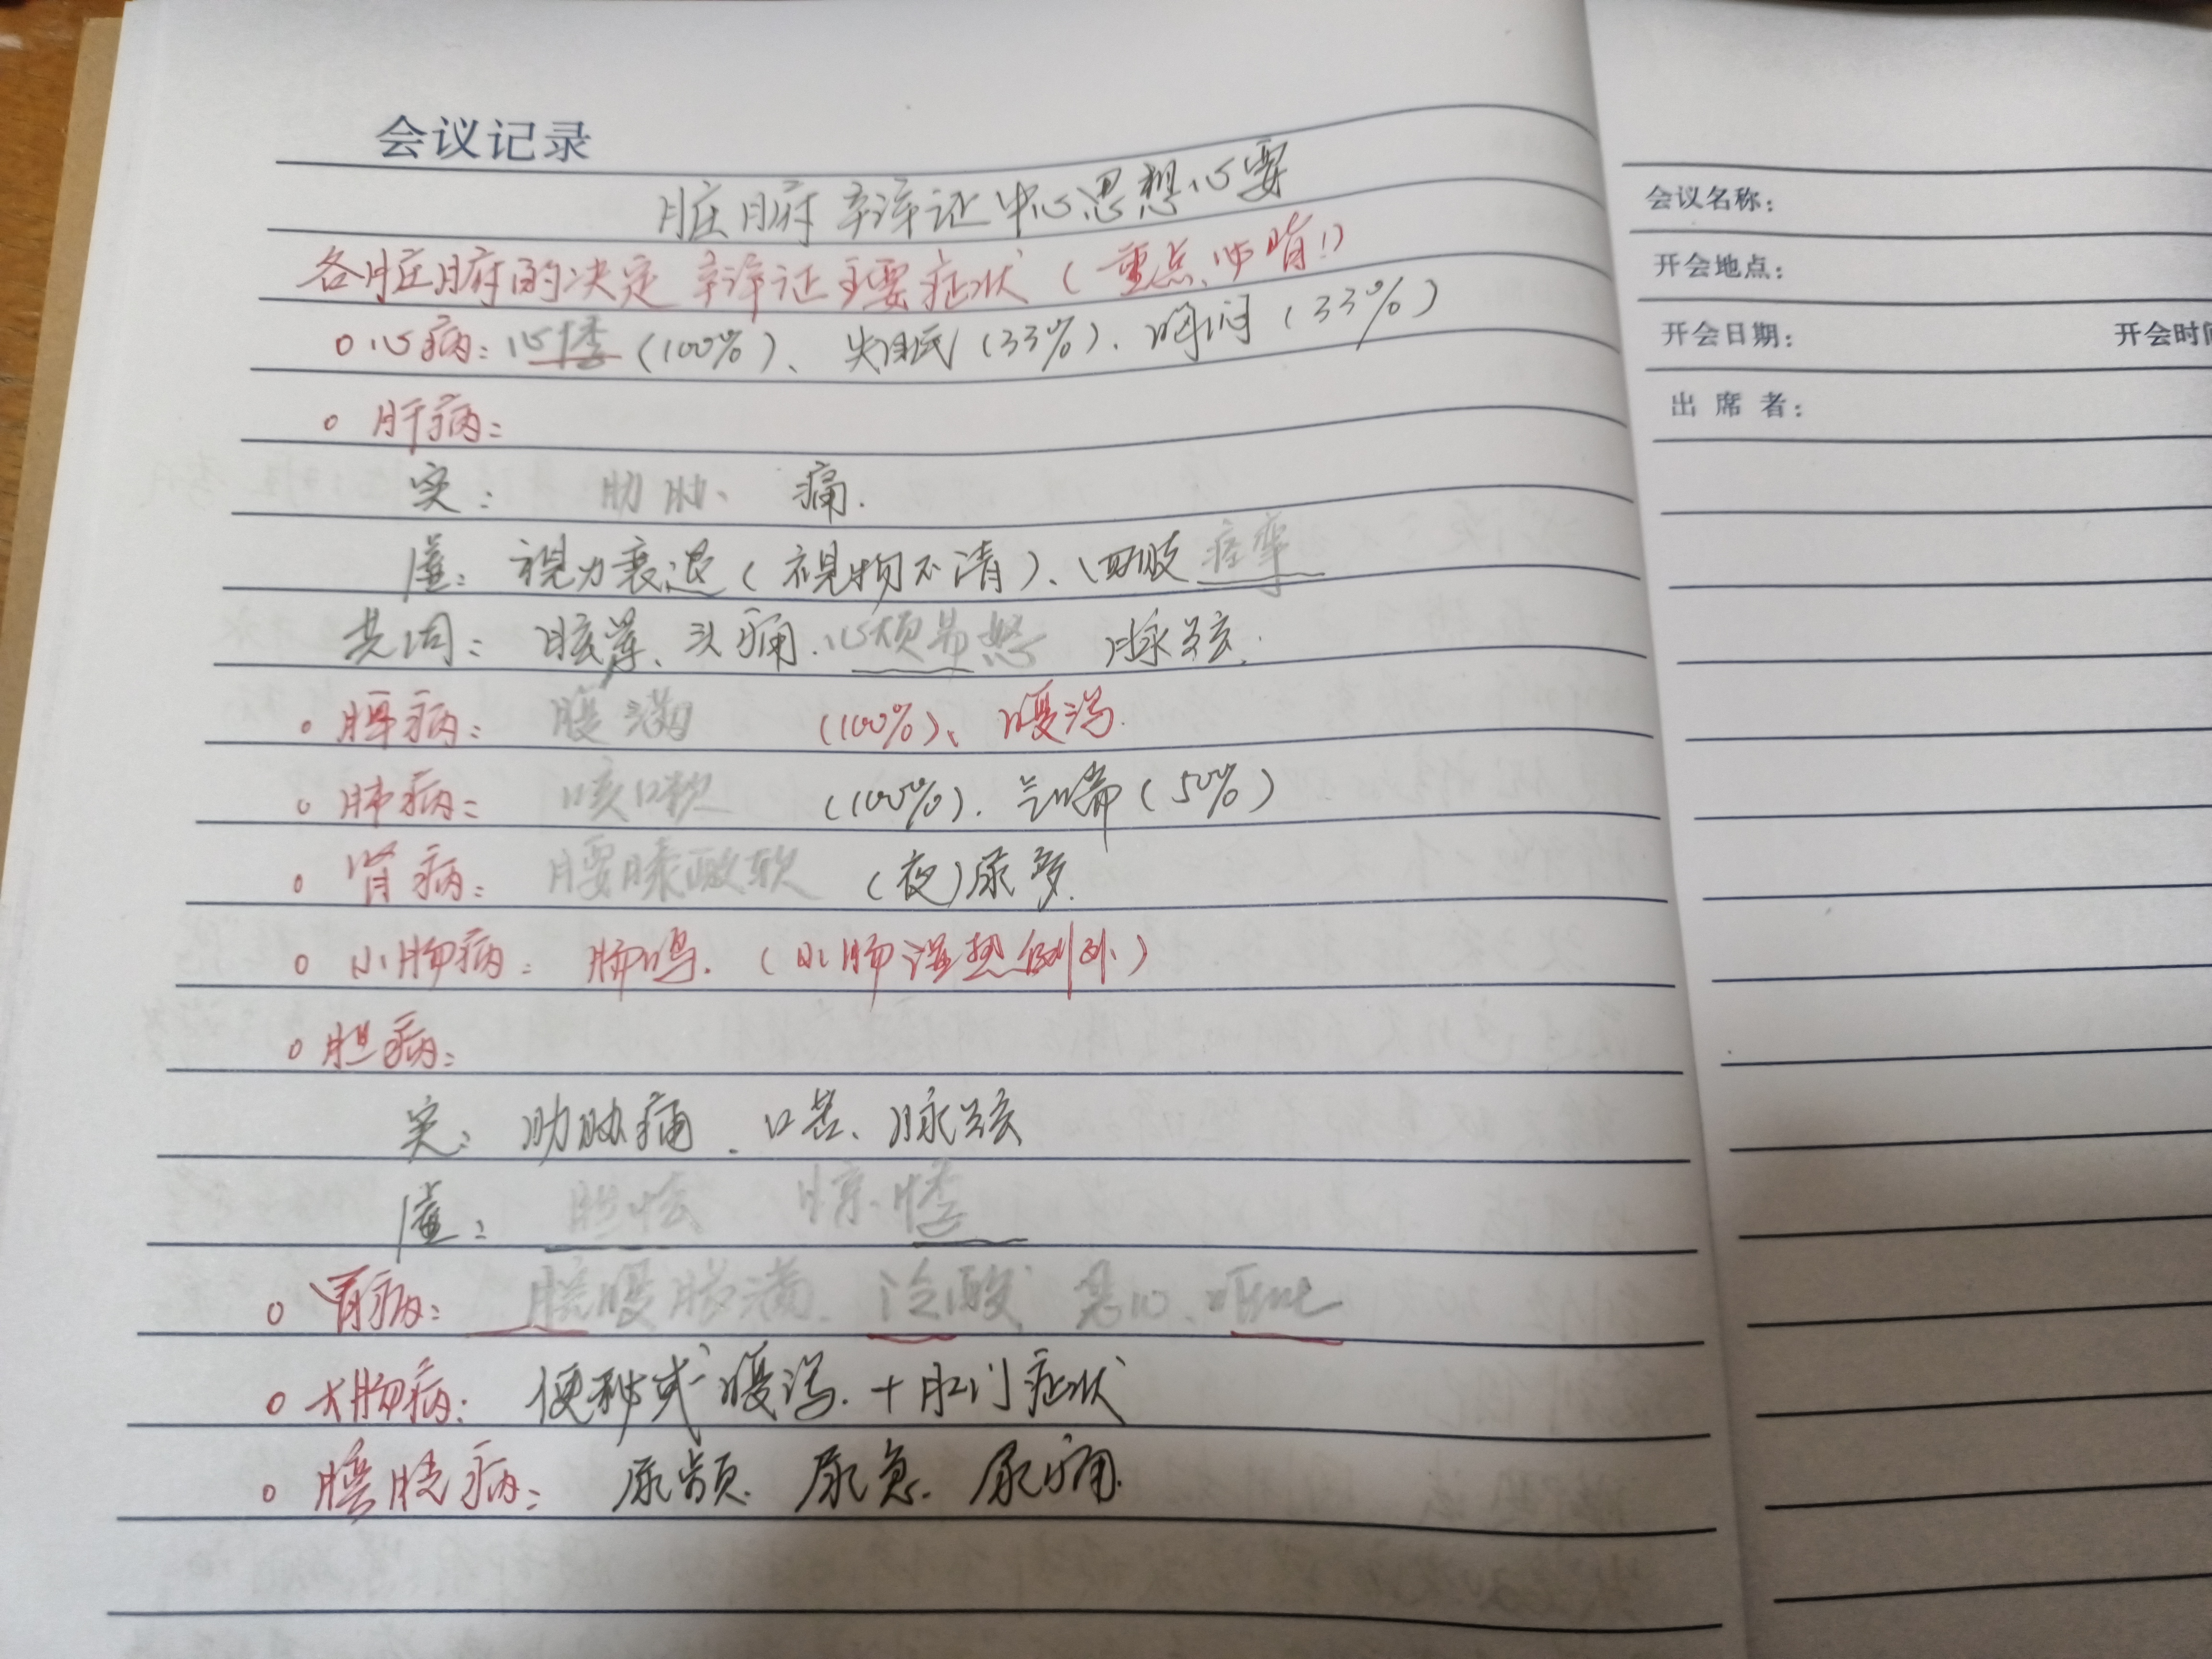 会议记录
脏腑辛译证中心思想心要
各脏腑的决定辛译证主要症状(重点、必背!)
心病:心悸(100%)、失眠(33%)、胸闷(33%)
肝病:
实: 胁肋、 痛.
虚:视力衰退(视物不清)、四肢痉挛
共同:眩晕、头痛.心烦易怒 脉弦.
脾病: 腹满 (100%)、腹泻.
肺病: 咳嗽 (100%). 气喘(50%)
肾病: 腰膝酸软 (夜)尿多.
小肠病: 肠鸣.(小肠湿热例外)
胆病:
实:肋胁痛.口苦、脉弦
虚: 胆怯 惊悸
胃病: 脘腹胀满.泛酸 恶心.呕吐
大肠病:便秘或腹泻.+肛门症状
膀胱病: 尿频.尿急.尿痛.
会议名称:
开会地点:
开会日期: 开会时间
出席者: